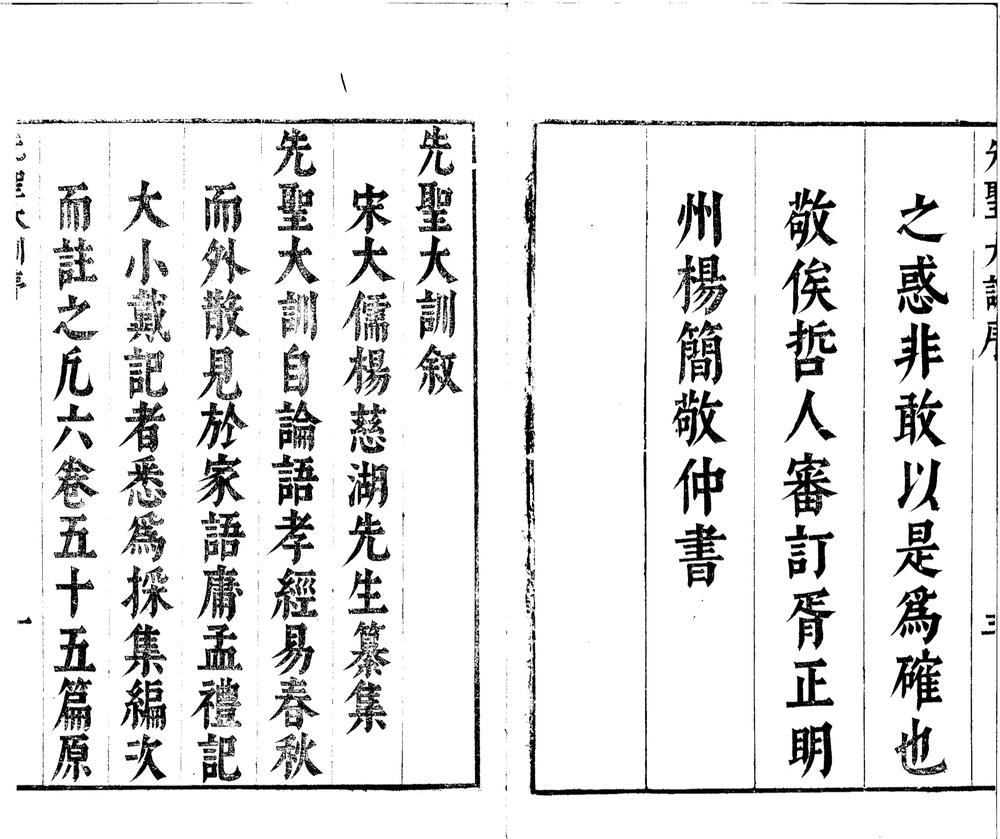 之惑非敢以是爲確也
敬俟哲人審訂胥正明
州楊簡敬仲書
先聖大訓叙
宋大儒楊慈湖先生纂集
先聖大訓自論語孝經易春秋
而外散見於家語庸孟禮記
大小戴記者悉爲採集編次
而註之凢六卷五十五篇原
一